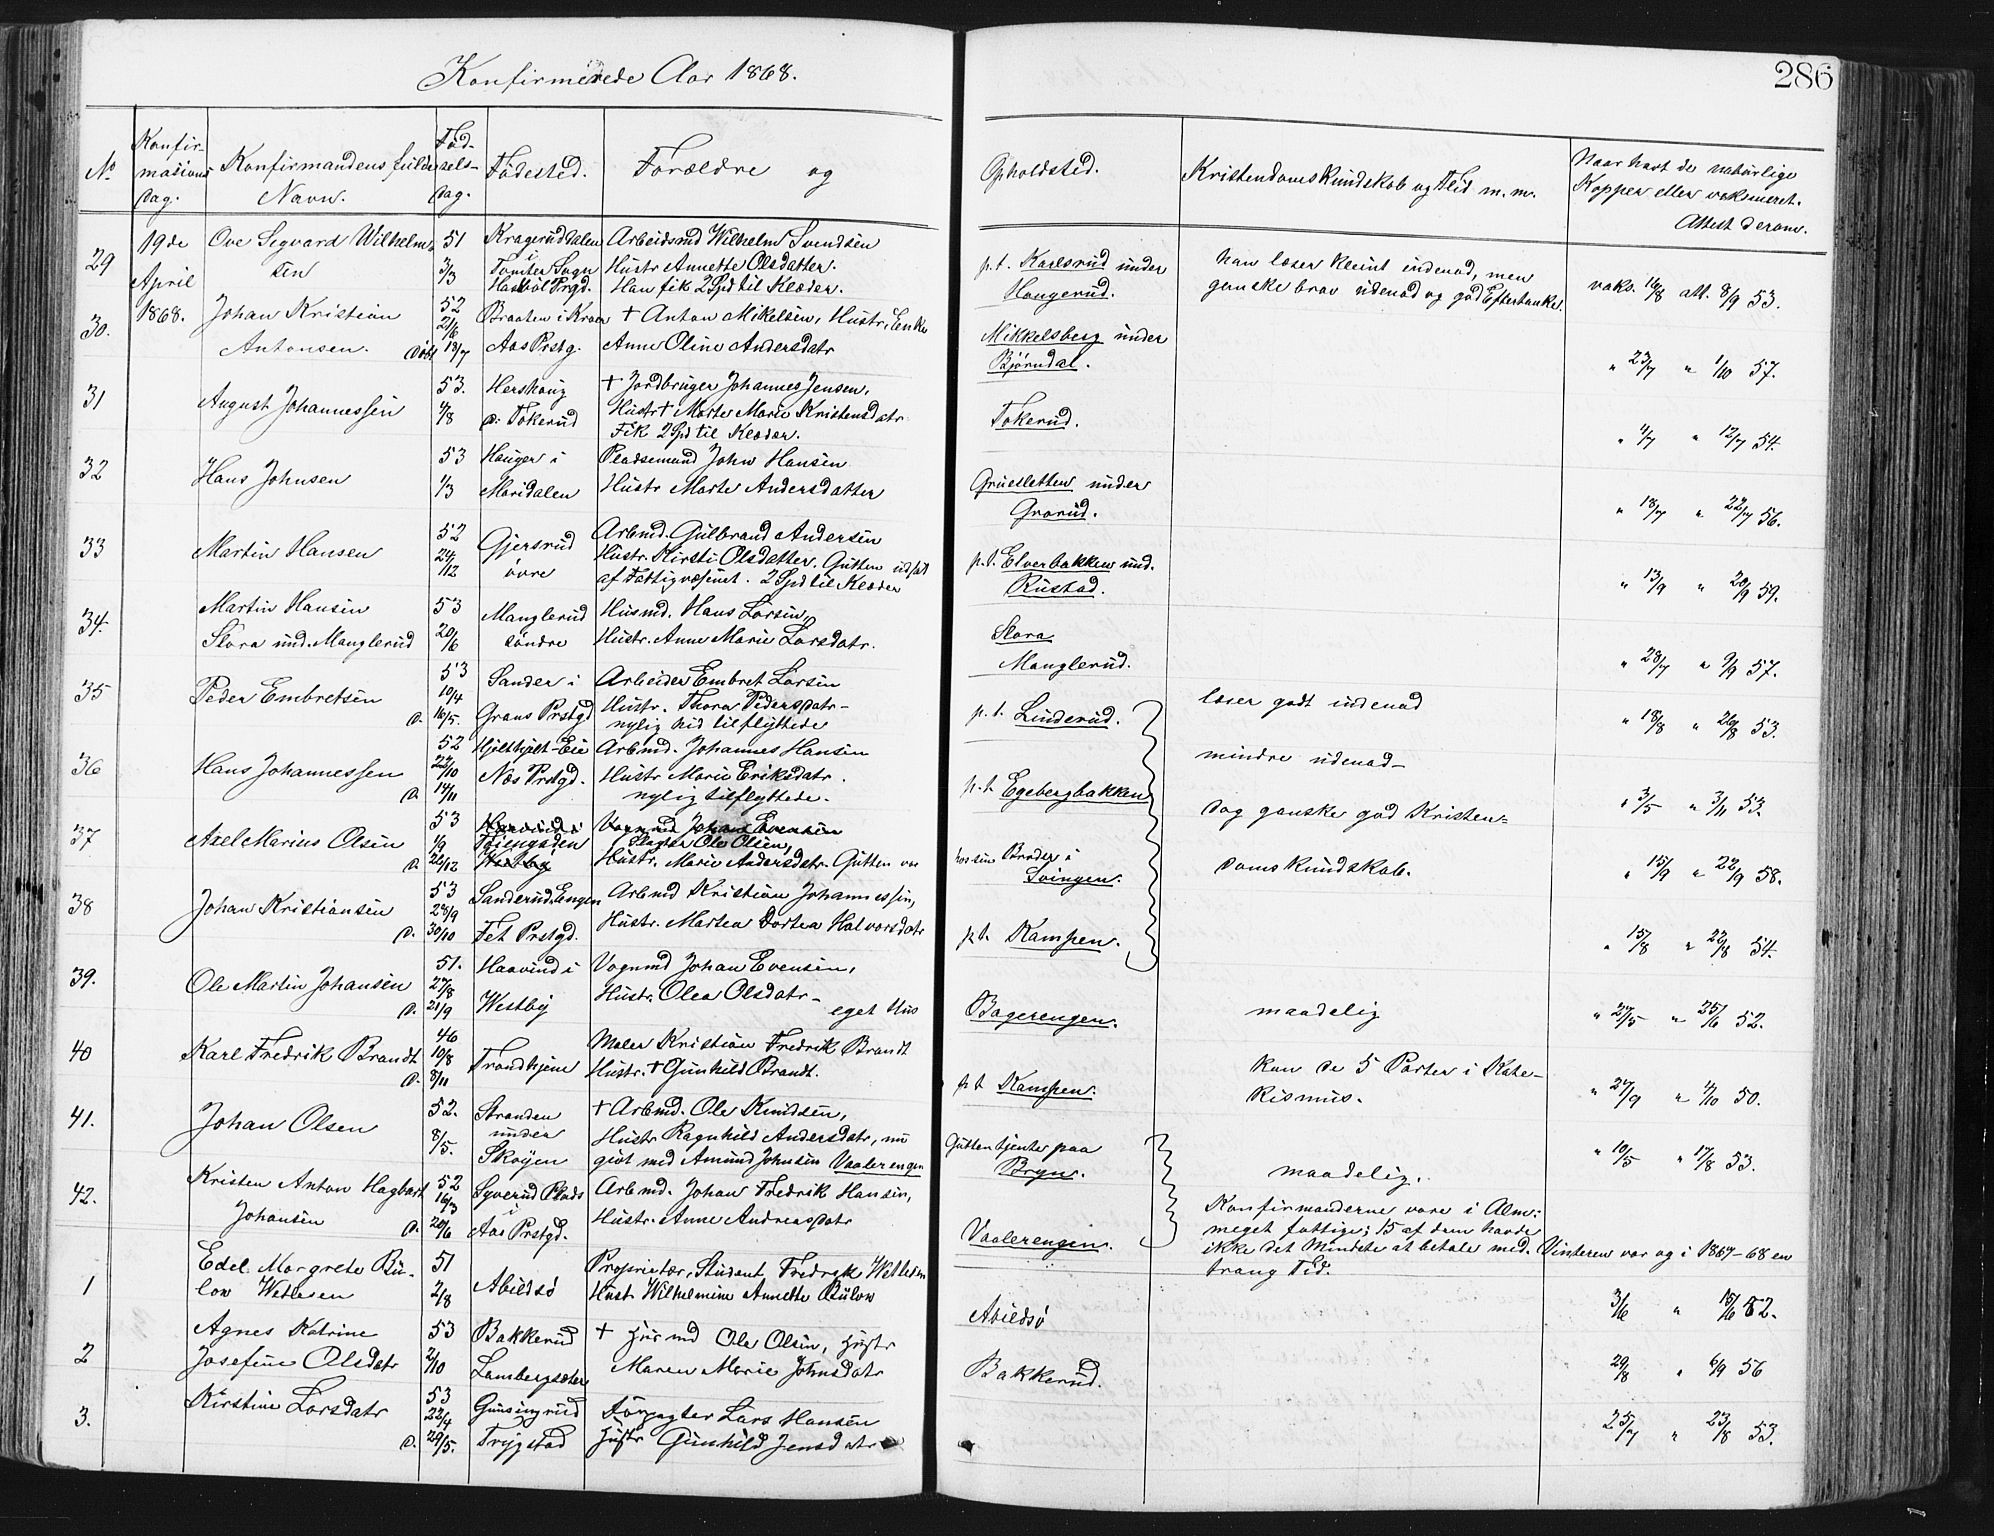 Konfirmerede Aar 1868.
286
No
Konfir-
masions
dag.
Konfirmandens fulde
Navn.
Fød-
sels-
dag.
Fødested.
Forældre og
Opholdsted.
Kristendomskundskab og Flid m. m.
Naar havt de naturlige
Kopper eller vaksineret.
Attest derom.
29
19de
April
1868.
Ove Segvard Wilhelm
sen
51
3/3
Kragerud dalen
i
Tomter Sogn
Haabøl Prgd.
Arbeidsmd Wilhelm Svendsen
Hustr Annette Olsdatter.
Han fik 2 Spd til Klæder.
p.t. Karlsrud under
Haugerud.
han læser kleint indenad, men
ganske brav udenad og god Eftertanke.
vaks. 16/8 att. 8/9 53.
30.
Johan Kristian
Antonsen. døbt
52
21/6
13/7
Braaten i Kroer
Aas Prstg.
+ Anton Mikelsen, Hustr, Enke
Anne Oline Andersdatr
Mikkelsberg under
Bjørndal.
" 23/7 " 1/10 57.
31
August Johannessen
53.
4/8
Herskoug
o: Tokerud
+ Jordbruger Johannes Jensen,
Hustr + Marte Marie Kristensdatr
Fik 2 Spd til Klæder.
Tokerud.
" 4/7 " 12/7 54.
32
Hans Johnsen
53
1/3
Hauger i
Maridalen
Pladsemand John Hansen
Hustr Marte Andersdatter
Gruesletten under
Grorud.
" 18/7 " 22/7 56.
33
Martin Hansen
52
24/12
Gjersrud
øvre
Arbmd. Gulbrand Andersen
Hustr. Kirsti Olsdatter. Gutten udsat
af Fattigvæsenet. 2 Spd til Klæder
p.t. Elverbakken und.
Rustad.
" 13/9 " 20/9 59.
34.
Martin Hansen
Slora und. Manglerud
53
20/6
Manglerud
søndre
Husmd. Hans Larsen,
Hustr. Anne Marie Larsdatr.
Slora
Manglerud.
" 28/7 " 9/9 57.
35
Peder Embretsen
d.
53
10/4
16/5.
Sander i
Grans Prstgd
Arbeider Embret Larsen
Hustr. Thora Pedersdatr-
nylig hid tilflyttede
p.t. Linderud.
læser godt indenad
" 18/8 " 26/8 53.
36
Hans Johannessen
d.
52
22/10
14/11
Hjelthjelt-Eie
Næs Prstgd.
Arbmd. Johannes Hansen
Hustr Marie Eriksdatr.
nylig tilflyttede.
p.t. Egebergbakken
mindre udenad-
dog ganske god Kristen=
" 3/5 " 3/11 53.
37
Axel Marius Olsen
d.
53
1/9
26/12
Fjeengaden
Slagter Ole Olsen,
Hustr. Marie Andersdatr. Gutten var
hos sin Broder i
Svingen.
domskundskab.
" 15/9 " 22/9 58.
38
Johan Kristiansen
d.
53
28/9
30/10
Sanderud Engen
Fet Prstgd.
Arbmd Kristian Johannessen,
Hustr. Martea Dortea Halvorsdatr
p.t. Kampen.
" 15/8 " 22/8 54.
39.
Ole Martin Johansen
d.
51.
27/8
21/9
Haavind i
Westby
Vognmd Johan Evensen,
Hustr. Olea Olsdatr-
eget Hus
Bagerengen.
maadelig
" 27/5 " 25/6 52.
40
Karl Fredrik Brandt
d.
46
10/8
8/11
Trondhjem
Maler Kristian Fredrik Brandt
Hustr. + Gunhild Brandt
p.t. Kampen.
kun de 5 Parter i Kate-
kismus.
" 27/9 " 4/10 50.
41.
Johan Olsen
52.
8/5.
Stranden
under
Skøyen
+ Arbmd. Ole Knudsen,
Hustr Ragnhild Andersdatr, nu
givt med Amund Johnsen Vaalerengen
Gutten tjenter paa
Bryn.
maadelig.
" 10/5 " 17/8 53.
42.
Kristen Anton Hagbart
Johansen d.
52
16/3
20/6
Syverud Plads
i
Aas Prstgd.
Arbmd. Johan Fredrik Hansen,
Hustr. Anne Andreasdatr
Vaalerengen.
Konfirmanderne vare i Alm:
meget fattige; 15 af dem havde
ikke det Mindste at betale med. Vinteren var og i 1867-68 en
trang Tid.
1
Edel Margrete Bü-
low Wetlesen
51
2/8
Abildsø
Proprietær, Student Fredrik Wetlesen
Hustr Wilhelmine Annette Bülow
Abildsø
3/6 " 15/6 52.
2
Agnes Katrine
Josefine Olsdatr
53
2/10
Bakkerud
Lambergsæter
+ Husmd Ole Olsen, Hustr
Maren Marie Johnsdatr
Bakkerud.
29/8 " 6/9 56
3.
Kirstine Larsdatr
d.
53
22/4
29/5.
Gunsingrud
Trygstad
Forpagter Lars Hansen
Hustr Gunhild Jensdatr
25/7 " 23/8 53.